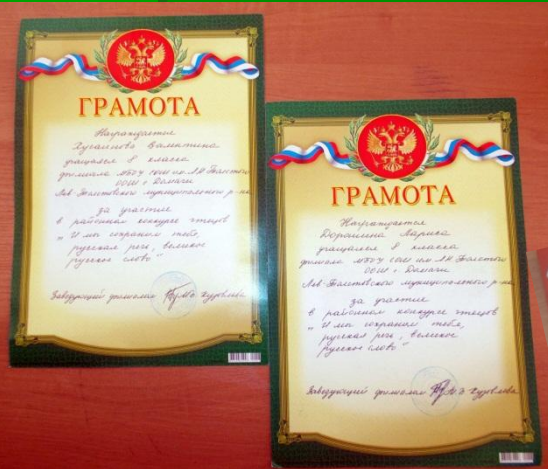 ГРАМОТА
Награждается
Валентина
учащаяся 8 класса
филиала МБОУ СОШ им Л.Н Толстого
ООШ с. Домачи
Лев-Толстовского муниципального р-на
за участие
в районном конкурсе чтецов
"И мы сохраним тебя,
русская речь, великое
русское слово"
Заведующий филиалом
ГРАМОТА
Награждается
Лариса
учащаяся 8 класса
филиала МБОУ СОШ им Л.Н Толстого
ООШ с. Домачи
Лев-Толстовского муниципального р-на
за участие
в районном конкурсе чтецов
"И мы сохраним тебя,
русская речь, великое
русское слово"
Заведующий филиалом